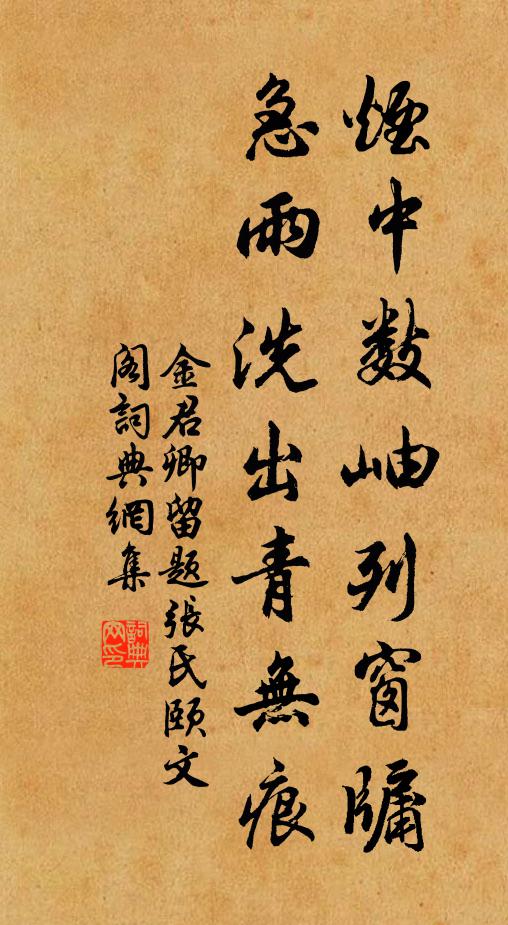 煙中數岫列窗牖
急雨洗出青無痕
金君卿留題張氏頤文
閣詞典網集
詞典
网印